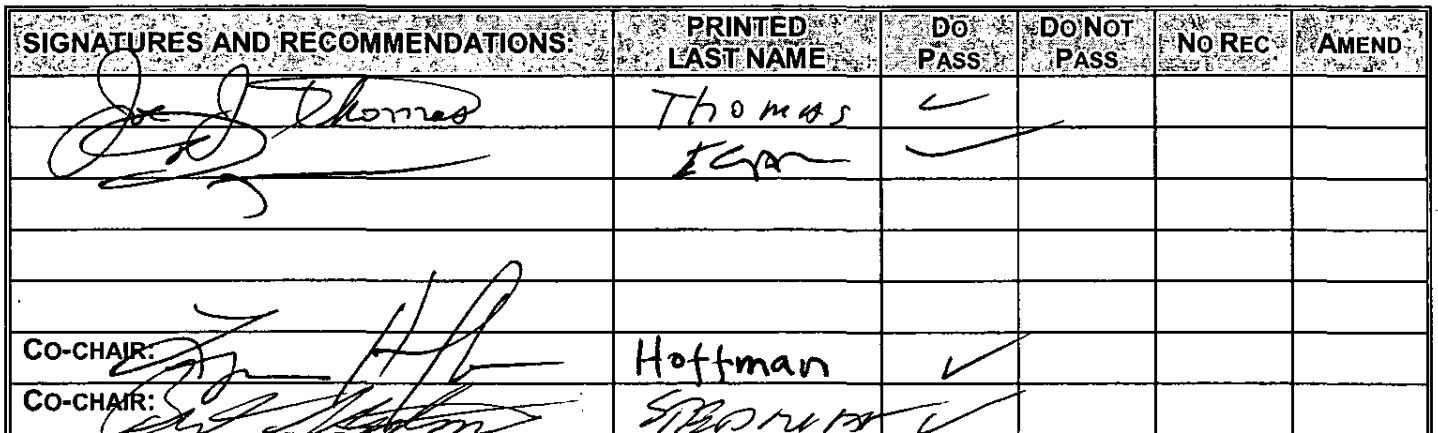 SIGNATURES AND RECOMMENDATIONS: PRINTED LAST NAME DO PASS DO NOT PASS NO REC AMEND
Joe J Thomas Thomas ✓
Egan ✓
CO-CHAIR: Hoffman ✓
CO-CHAIR: ✓